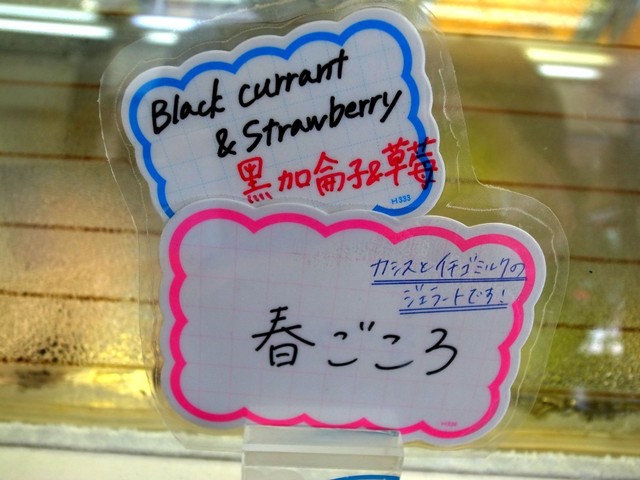 Black currant
& Strawberry
黑加侖子&草莓
H333
カシスとイチゴミルクの
ジェラートです!
春ごころ